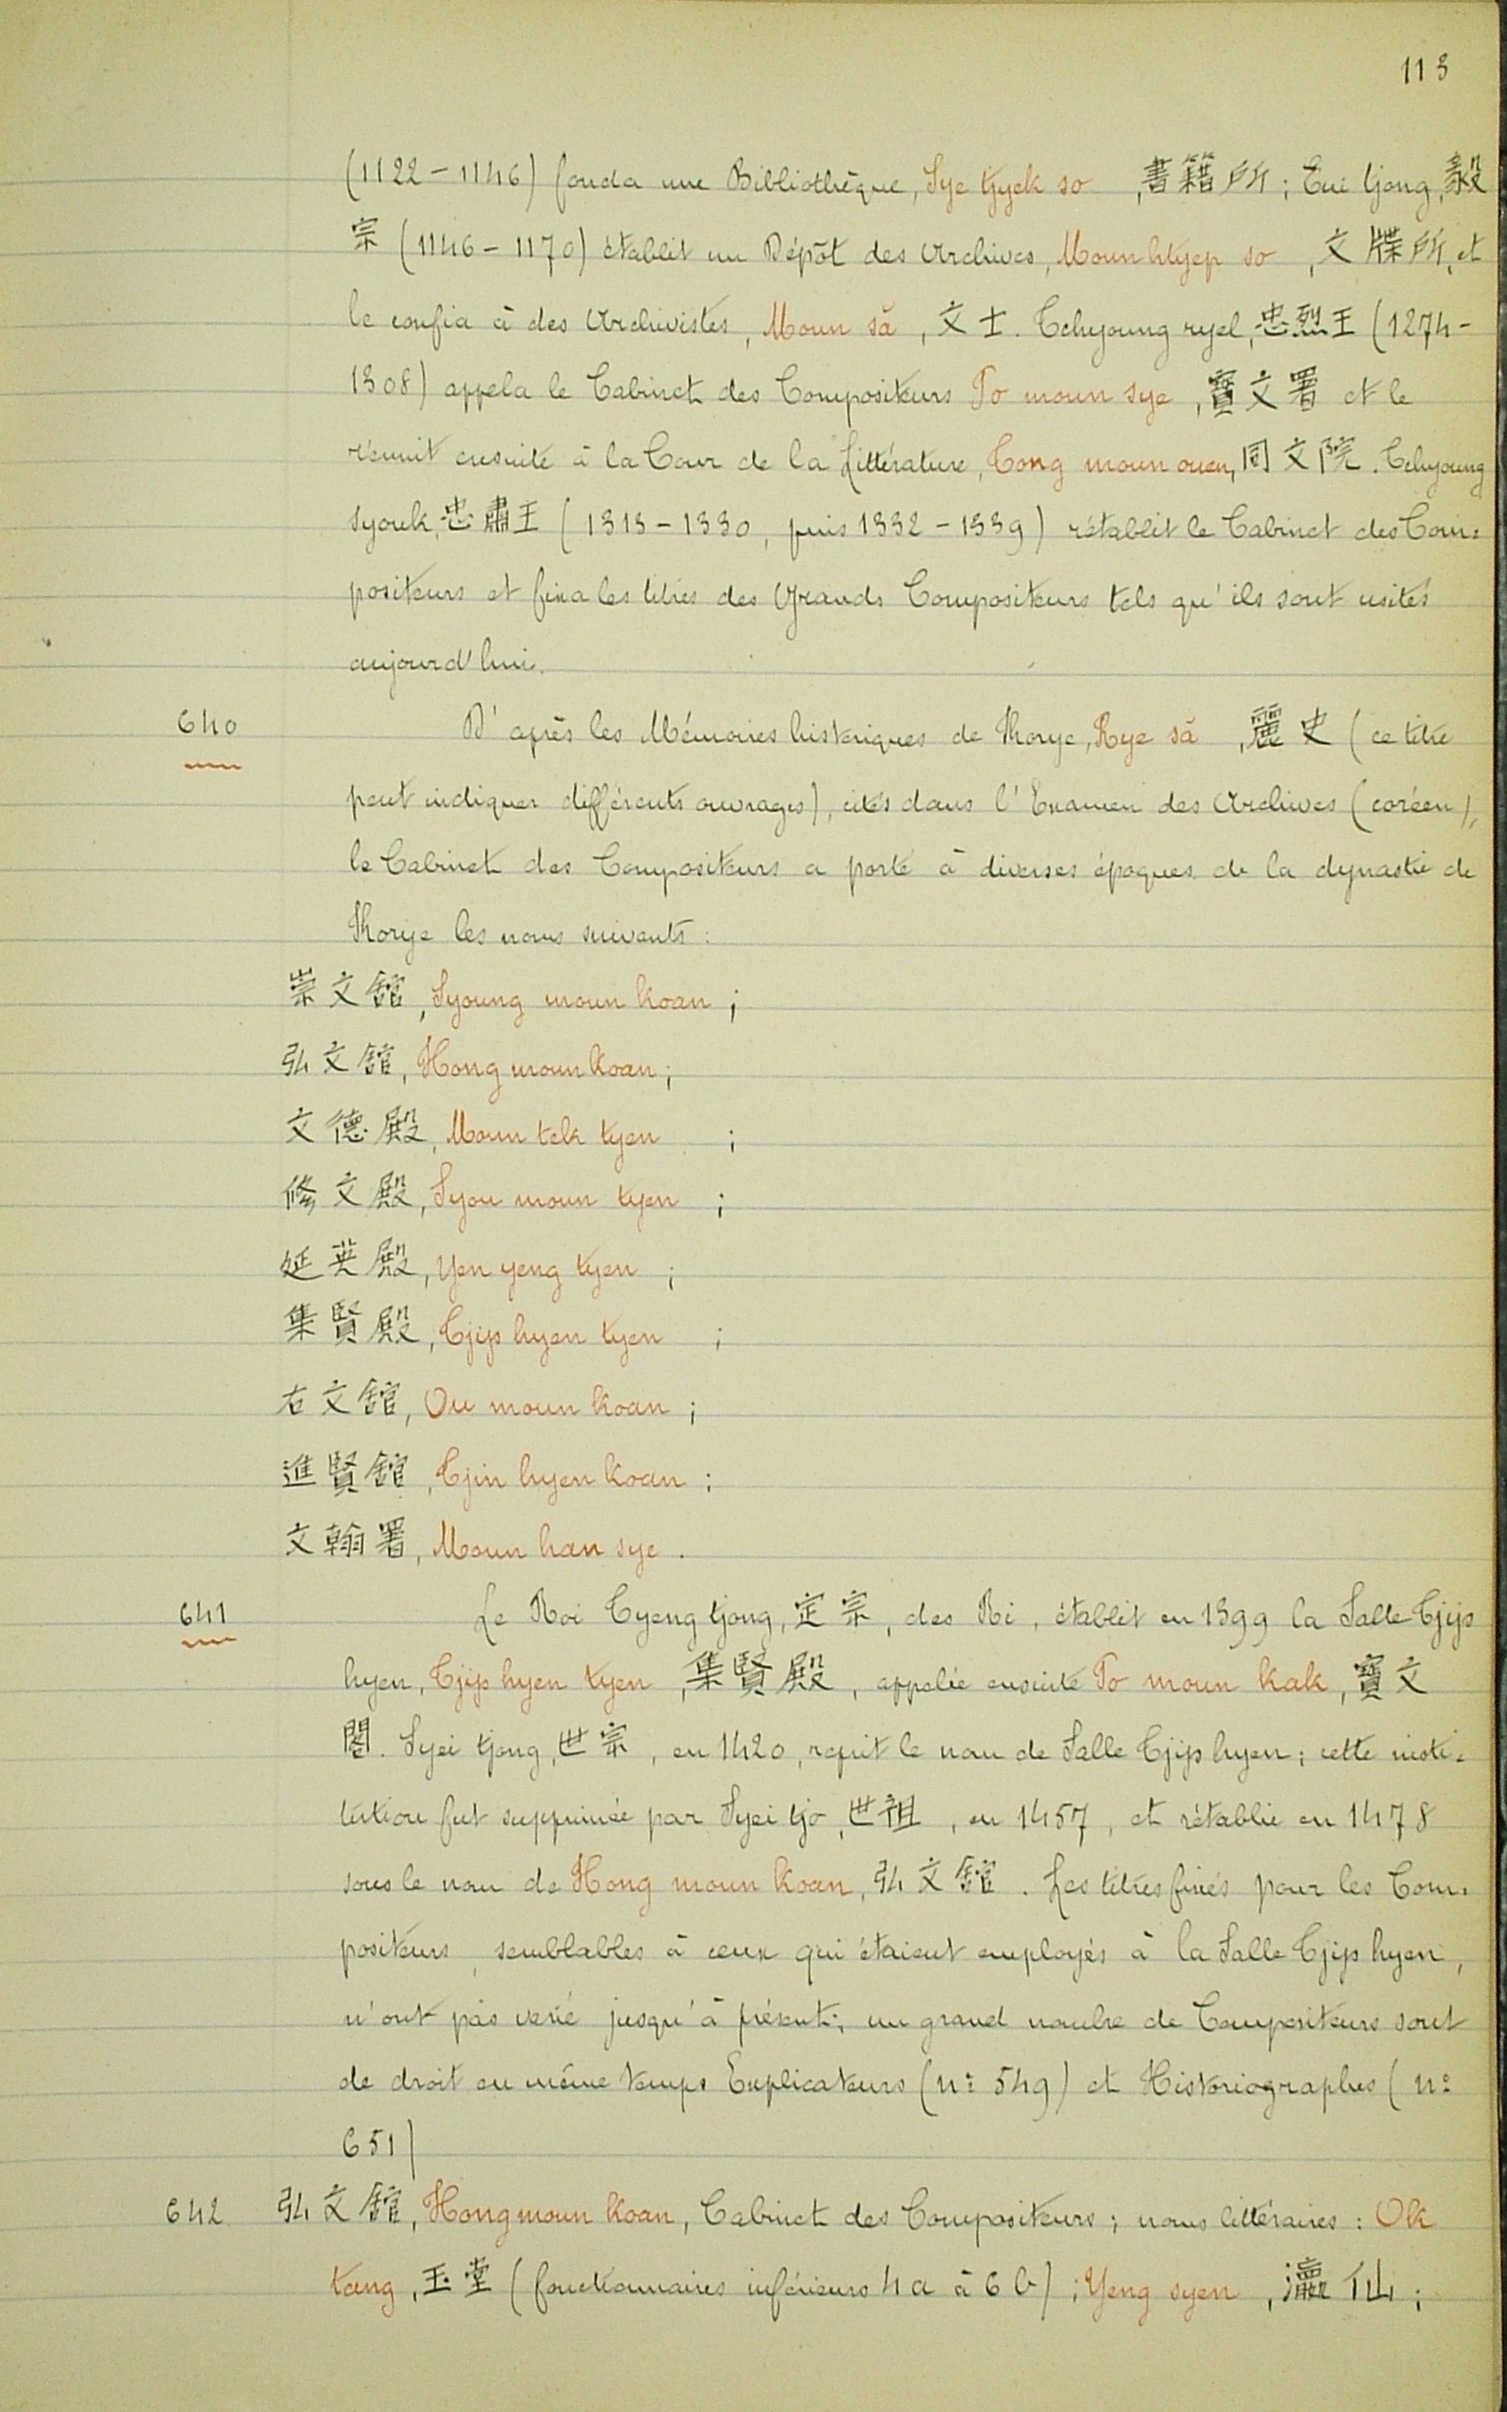 113
(1122-1146) fonda une Bibliothèque, Sye tjyek so, 書籍所; Eui tjong, 毅
宗 (1146-1170) établit un Dépôt des Archives, Moun htyep so, 文牒所, et
le confia à des Archivistes, Moun să, 文士. Tchyoung ryel, 忠烈王 (1274-
1308) appela le Cabinet des Compositeurs Po moun sye, 寶文署 et le
réunit ensuite à la Cour de la Littérature, Tong moun ouen, 同文院. Tchyoung
syouk, 忠肅王 (1313-1330, puis 1332-1339) rétablit le Cabinet des Com=
positeurs et fixa les titres des Grands Compositeurs tels qu'ils sont usités
aujourd'hui.
640 D'après les Mémoires historiques de Korye, Rye să, 麗史 (ce titre
peut indiquer différents ouvrages), cités dans l'Examen des Archives (coréen),
le Cabinet des Compositeurs a porté à diverses époques de la dynastie de
Korye les noms suivants:
崇文舘, Syoung moun koan;
弘文舘, Hong moun koan;
文德殿, Moun tek tyen;
修文殿, Syou moun tyen;
延英殿, Yen yeng tyen;
集賢殿, Tjip hyen tyen;
右文舘, Ou moun koan;
進賢舘, Tjin hyen koan;
文翰署, Moun han sye.
641 Le Roi Tyeng tjong, 定宗, des Ri, établit en 1399 la Salle Tjip
hyen, Tjip hyen tyen, 集賢殿, appelée ensuite Po moun kak, 寶文
閣. Syei tjong, 世宗, en 1420, reprit le nom de Salle Tjip hyen; cette insti=
tution fut supprimée par Syei tjo, 世祖, en 1457, et rétablie en 1478
sous le nom de Hong moun koan, 弘文舘. Les titres fixés pour les Com=
positeurs, semblables à ceux qui étaient employés à la Salle Tjip hyen,
n'ont pas varié jusqu'à présent; un grand nombre de Compositeurs sont
de droit en même temps Explicateurs (nº 549) et Historiographes (nº
651)
642 弘文舘, Hong moun koan, Cabinet des Compositeurs; noms littéraires: Ok
tang, 玉堂 (fonctionnaires inférieurs 4a à 6b); Yeng syen, 瀛仙;